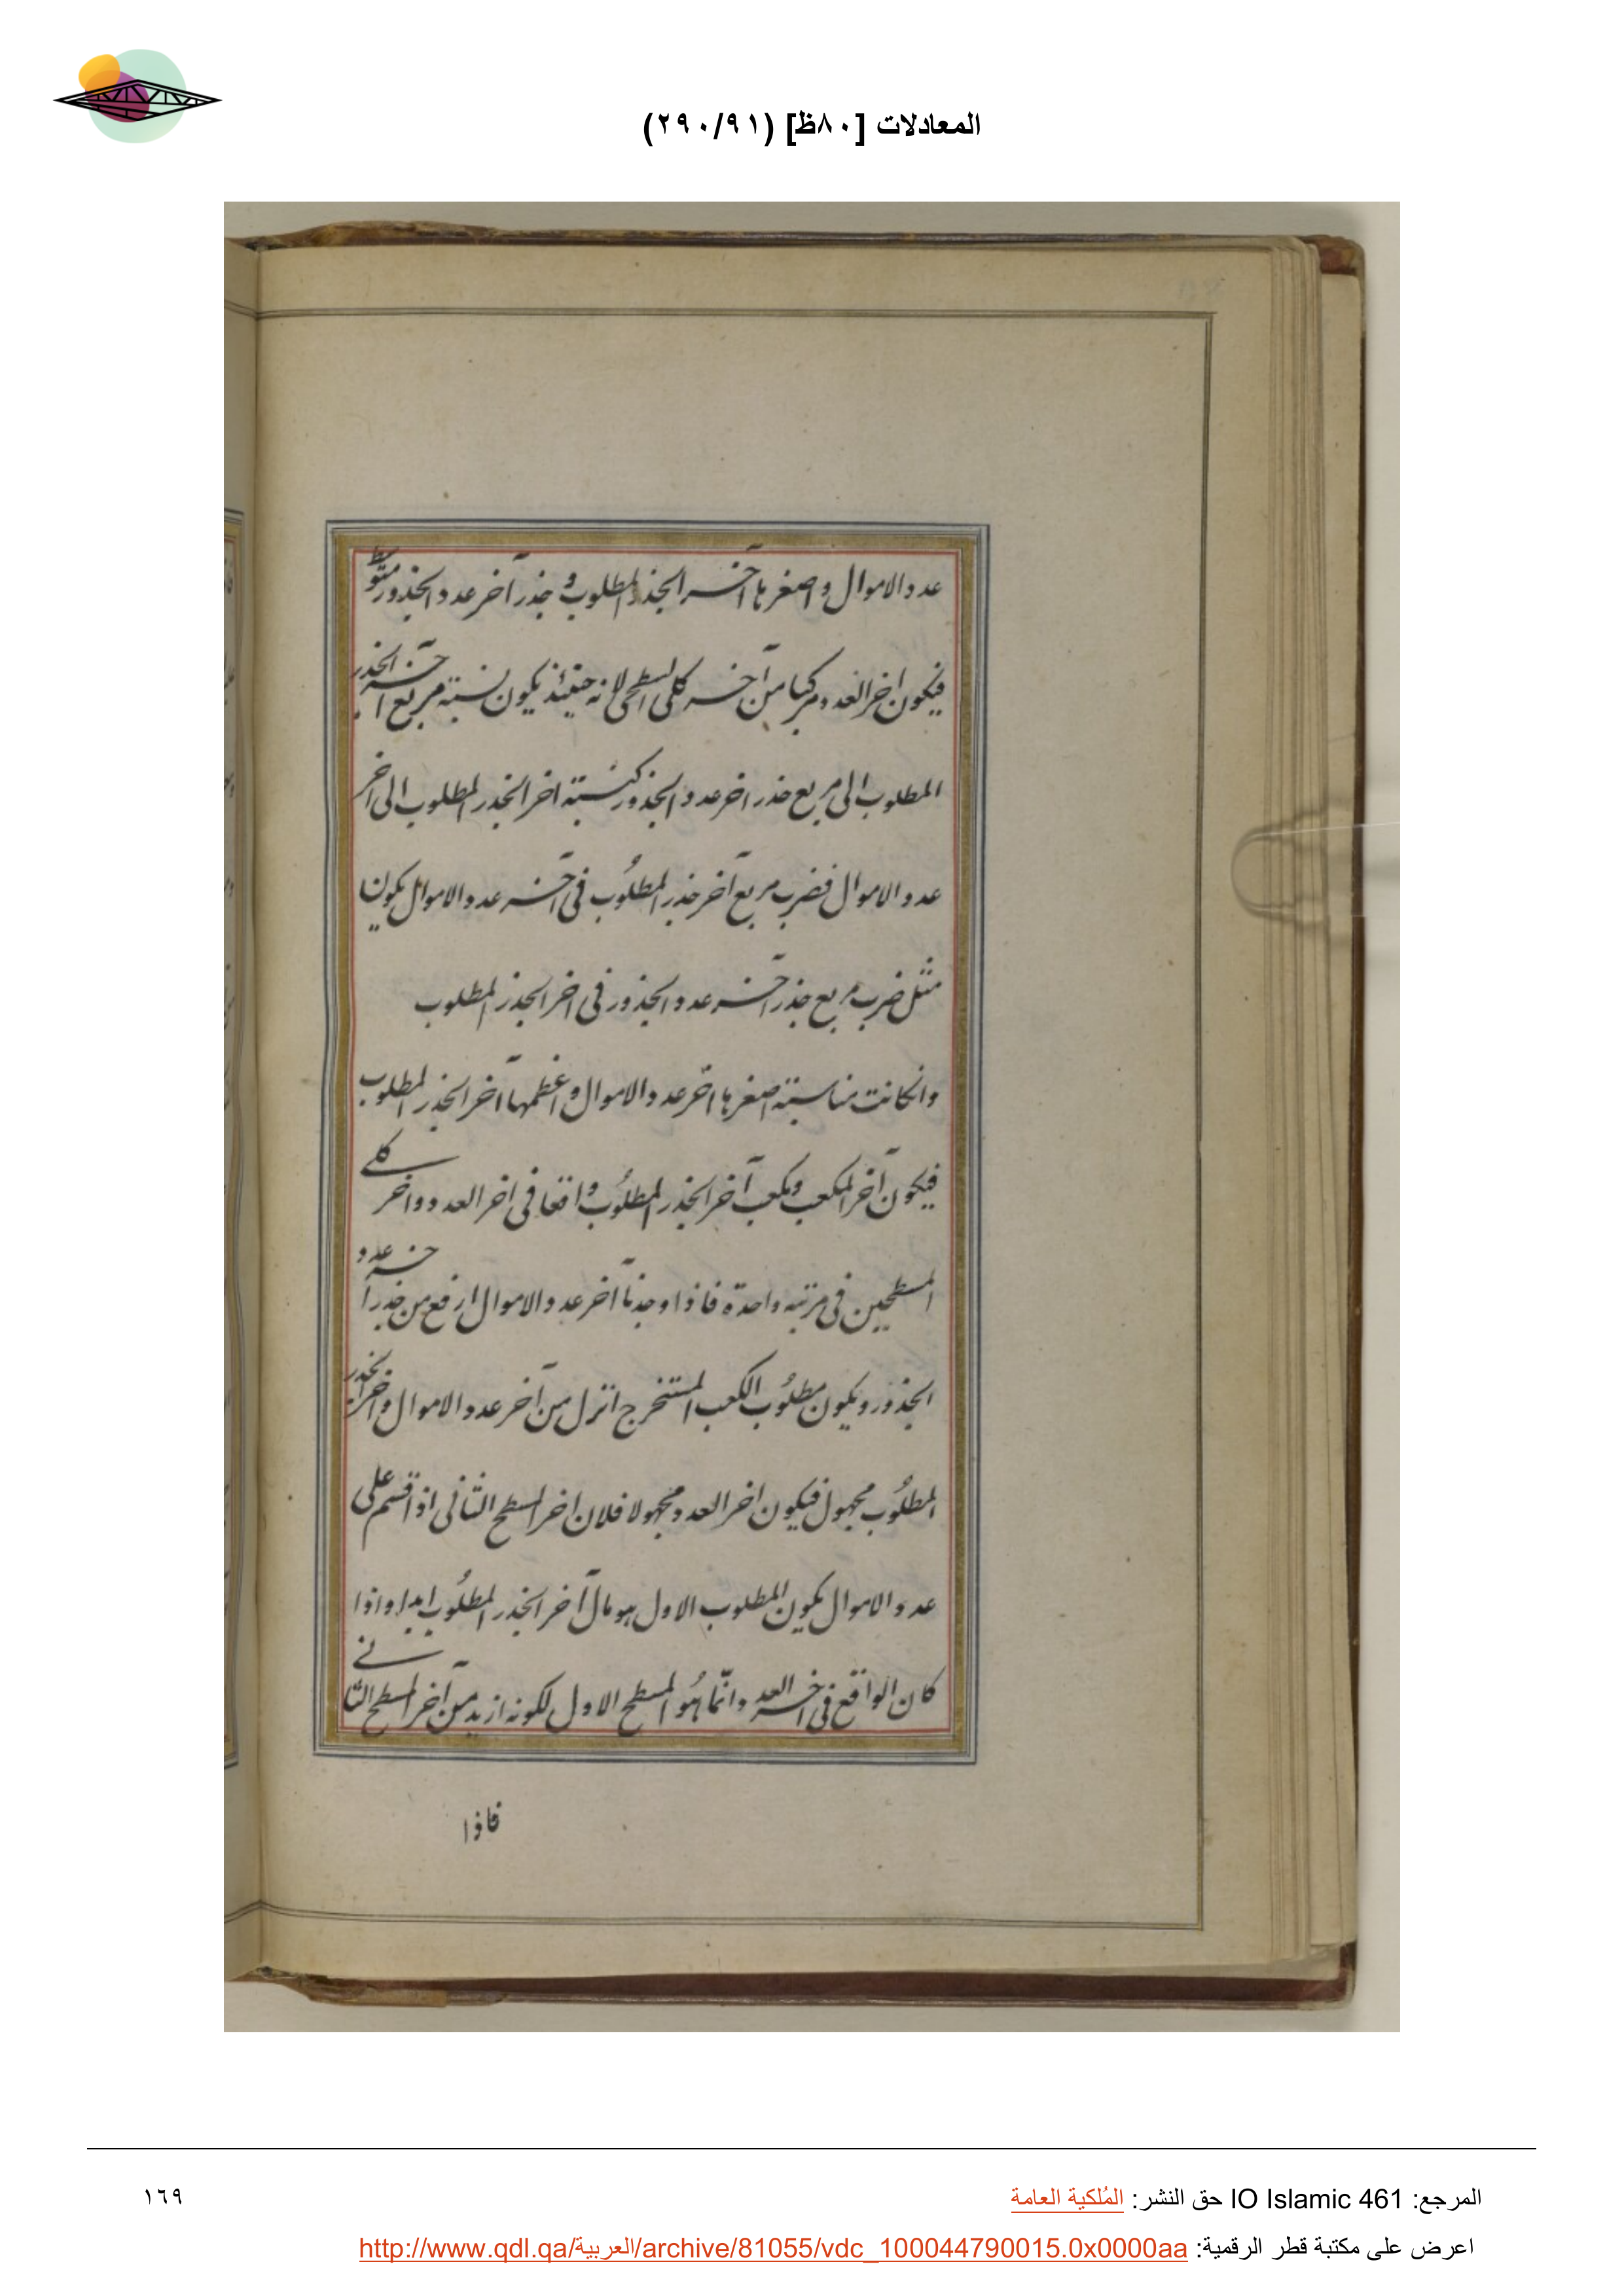 المعادلات [٨٠ظ] (٢٩٠/٩١)
عدد الاموال واصغرها آخر الجذر المطلوب وجذر آخر عدد الجذور متوسط
فيكون اخر العدد مركبا من آخر كلى السطحى لانه حينئذ يكون نسبة مربع آخر الجذر
المطلوب الى مربع جذر اخر عدد الجذور كنسبة اخر الجذر المطلوب الى اخر
عدد الاموال فضرب مربع آخر جذر المطلوب فى آخر عدد الاموال يكون
مثل ضرب مربع جذر آخر عدد الجذور فى اخر الجذر المطلوب
وانكانت مناسبة اصغرها اخر عدد الاموال واعظمها آخر الجذر المطلوب
فيكون آخر المكعب ومكعب آخر الجذر المطلوب واقعا فى اخر العدد واخر كلى
المسطحين فى مرتبه واحدة فاذا وجدنا آخر عدد الاموال ارفع من جذر آخر عدد
الجذور ويكون مطلوب الكعب المستخرج انزل من آخر عدد الاموال واخر الجذر
المطلوب مجهول فيكون اخر العدد مجهولا فلان اخر المسطح الثانى اذا قسم على
عدد الاموال يكون المطلوب الاول هو مال آخر الجذر المطلوب ابدا واذا
كان الواقع فى اخر العدد وانما هو المسطح الاول لكونه ازيد من آخر المسطح الثانى
فاذا
المرجع: IO Islamic 461 حق النشر: المُلكية العامة
١٦٩
اعرض على مكتبة قطر الرقمية: http://www.qdl.qa/العربية/archive/81055/vdc_100044790015.0x0000aa